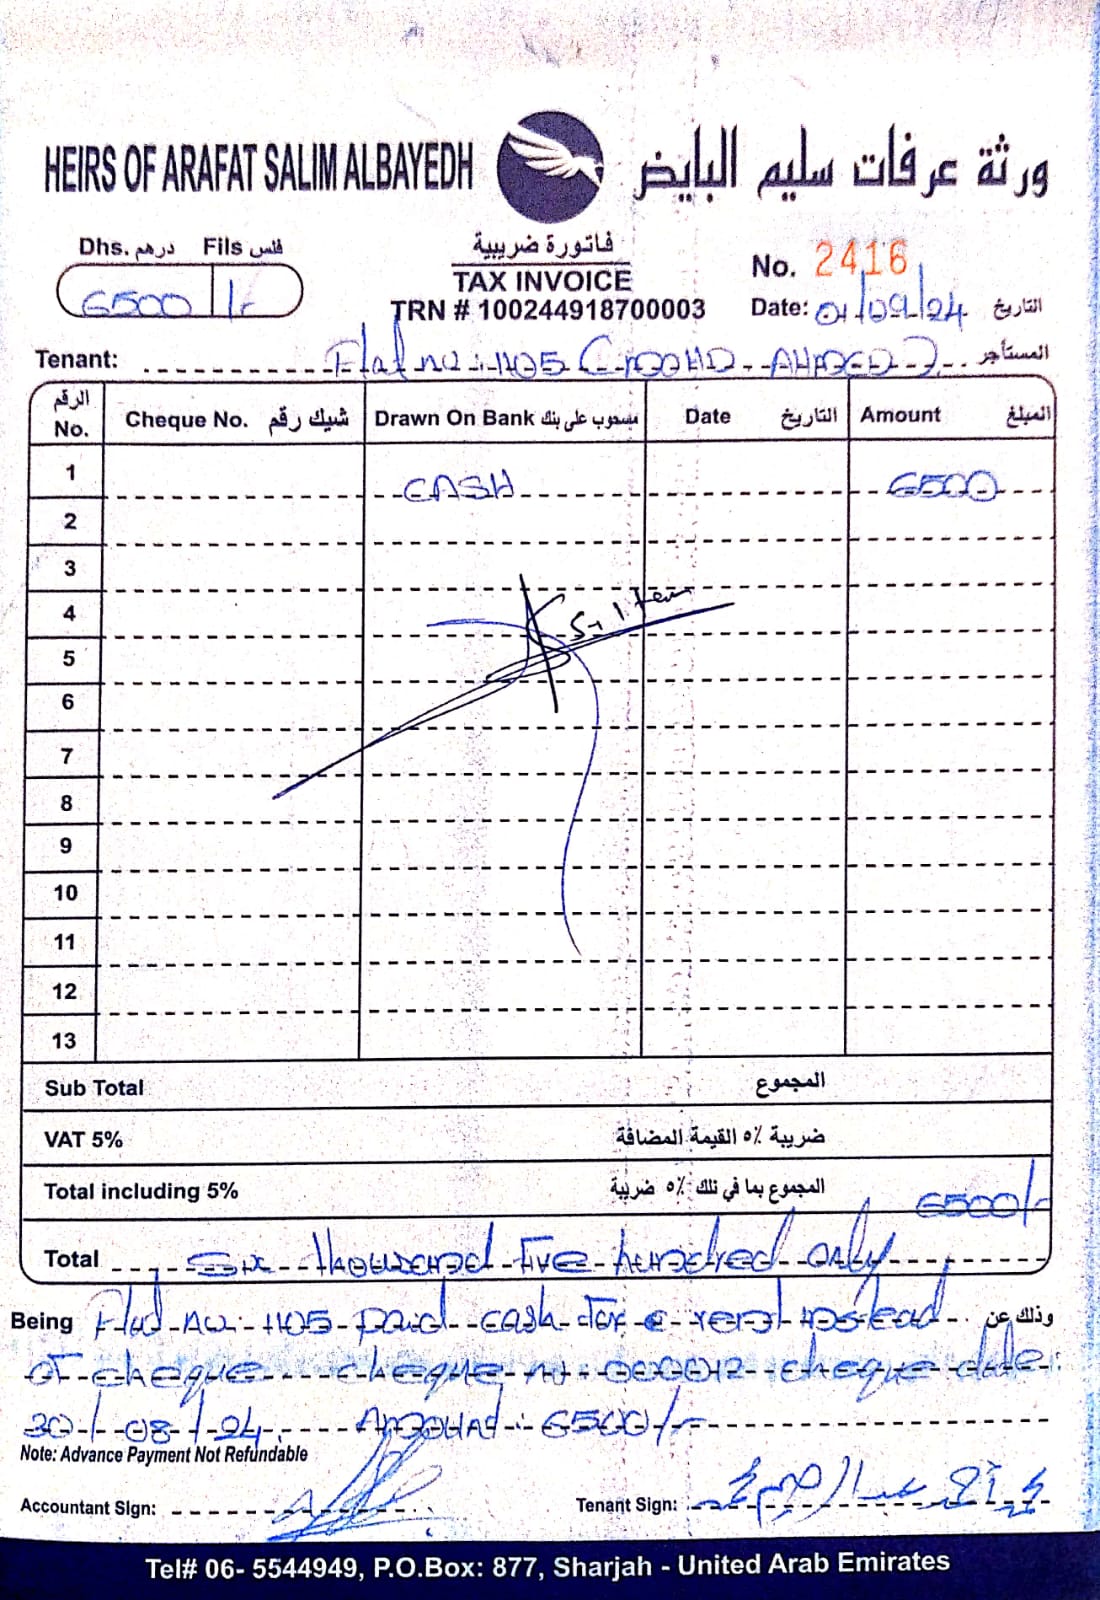 HEIRS OF ARAFAT SALIM ALBAYEDH ورثة عرفات سليم البايض
Dhs. درهم Fils فلس
6500 /-
فاتورة ضريبية
TAX INVOICE
TRN # 100244918700003
No. 2416
Date: 01/09/24 التاريخ
Tenant: Flat no: 1105 ( AHMED ) المستأجر
الرقم No. Cheque No. شيك رقم Drawn On Bank مسحوب على بنك Date التاريخ Amount المبلغ
1 CASH 6500
2
3
4
5
6
7
8
9
10
11
12
13
Sub Total المجموع
VAT 5% ضريبة ٥% القيمة المضافة
Total including 5% المجموع بما في ذلك ٥% ضريبة 6500/-
Total Six thousand Five hundred only
Being Flat no: 1105 paid cash for rent instead وذلك عن
of cheque cheque no 000012 cheque date:
30/08/24. Amount: 6500/-
Note: Advance Payment Not Refundable
Accountant Sign: Tenant Sign:
Tel# 06- 5544949, P.O.Box: 877, Sharjah - United Arab Emirates